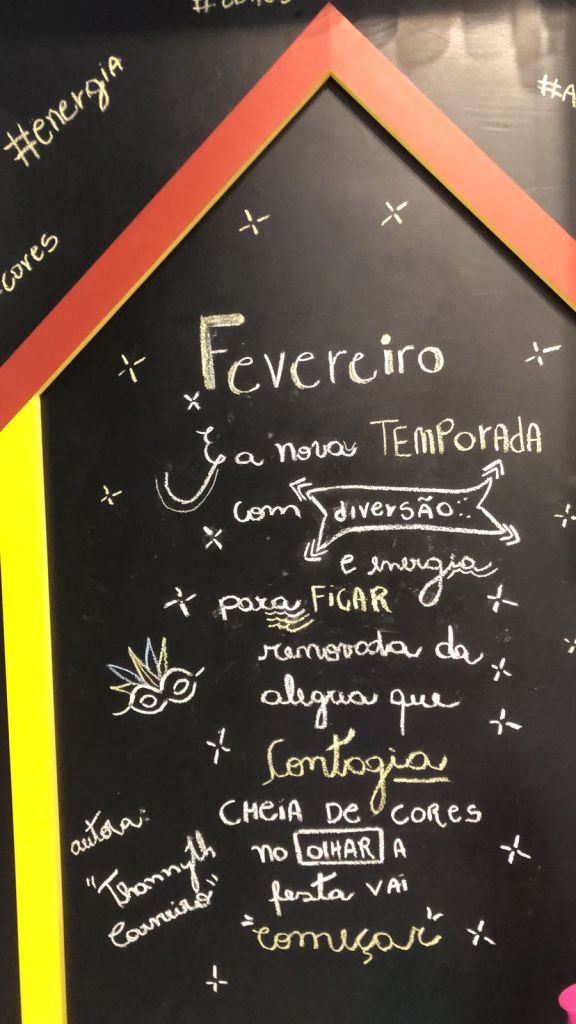 #energia
cores
Fevereiro
É a nova TEMPORADA
com diversão
e energia
para FICAR
renovada da
alegria que
Contagia
CHEIA DE CORES
no OLHAR A
festa VAI
"começar"
autora:
"Thannyth
Carneiro"